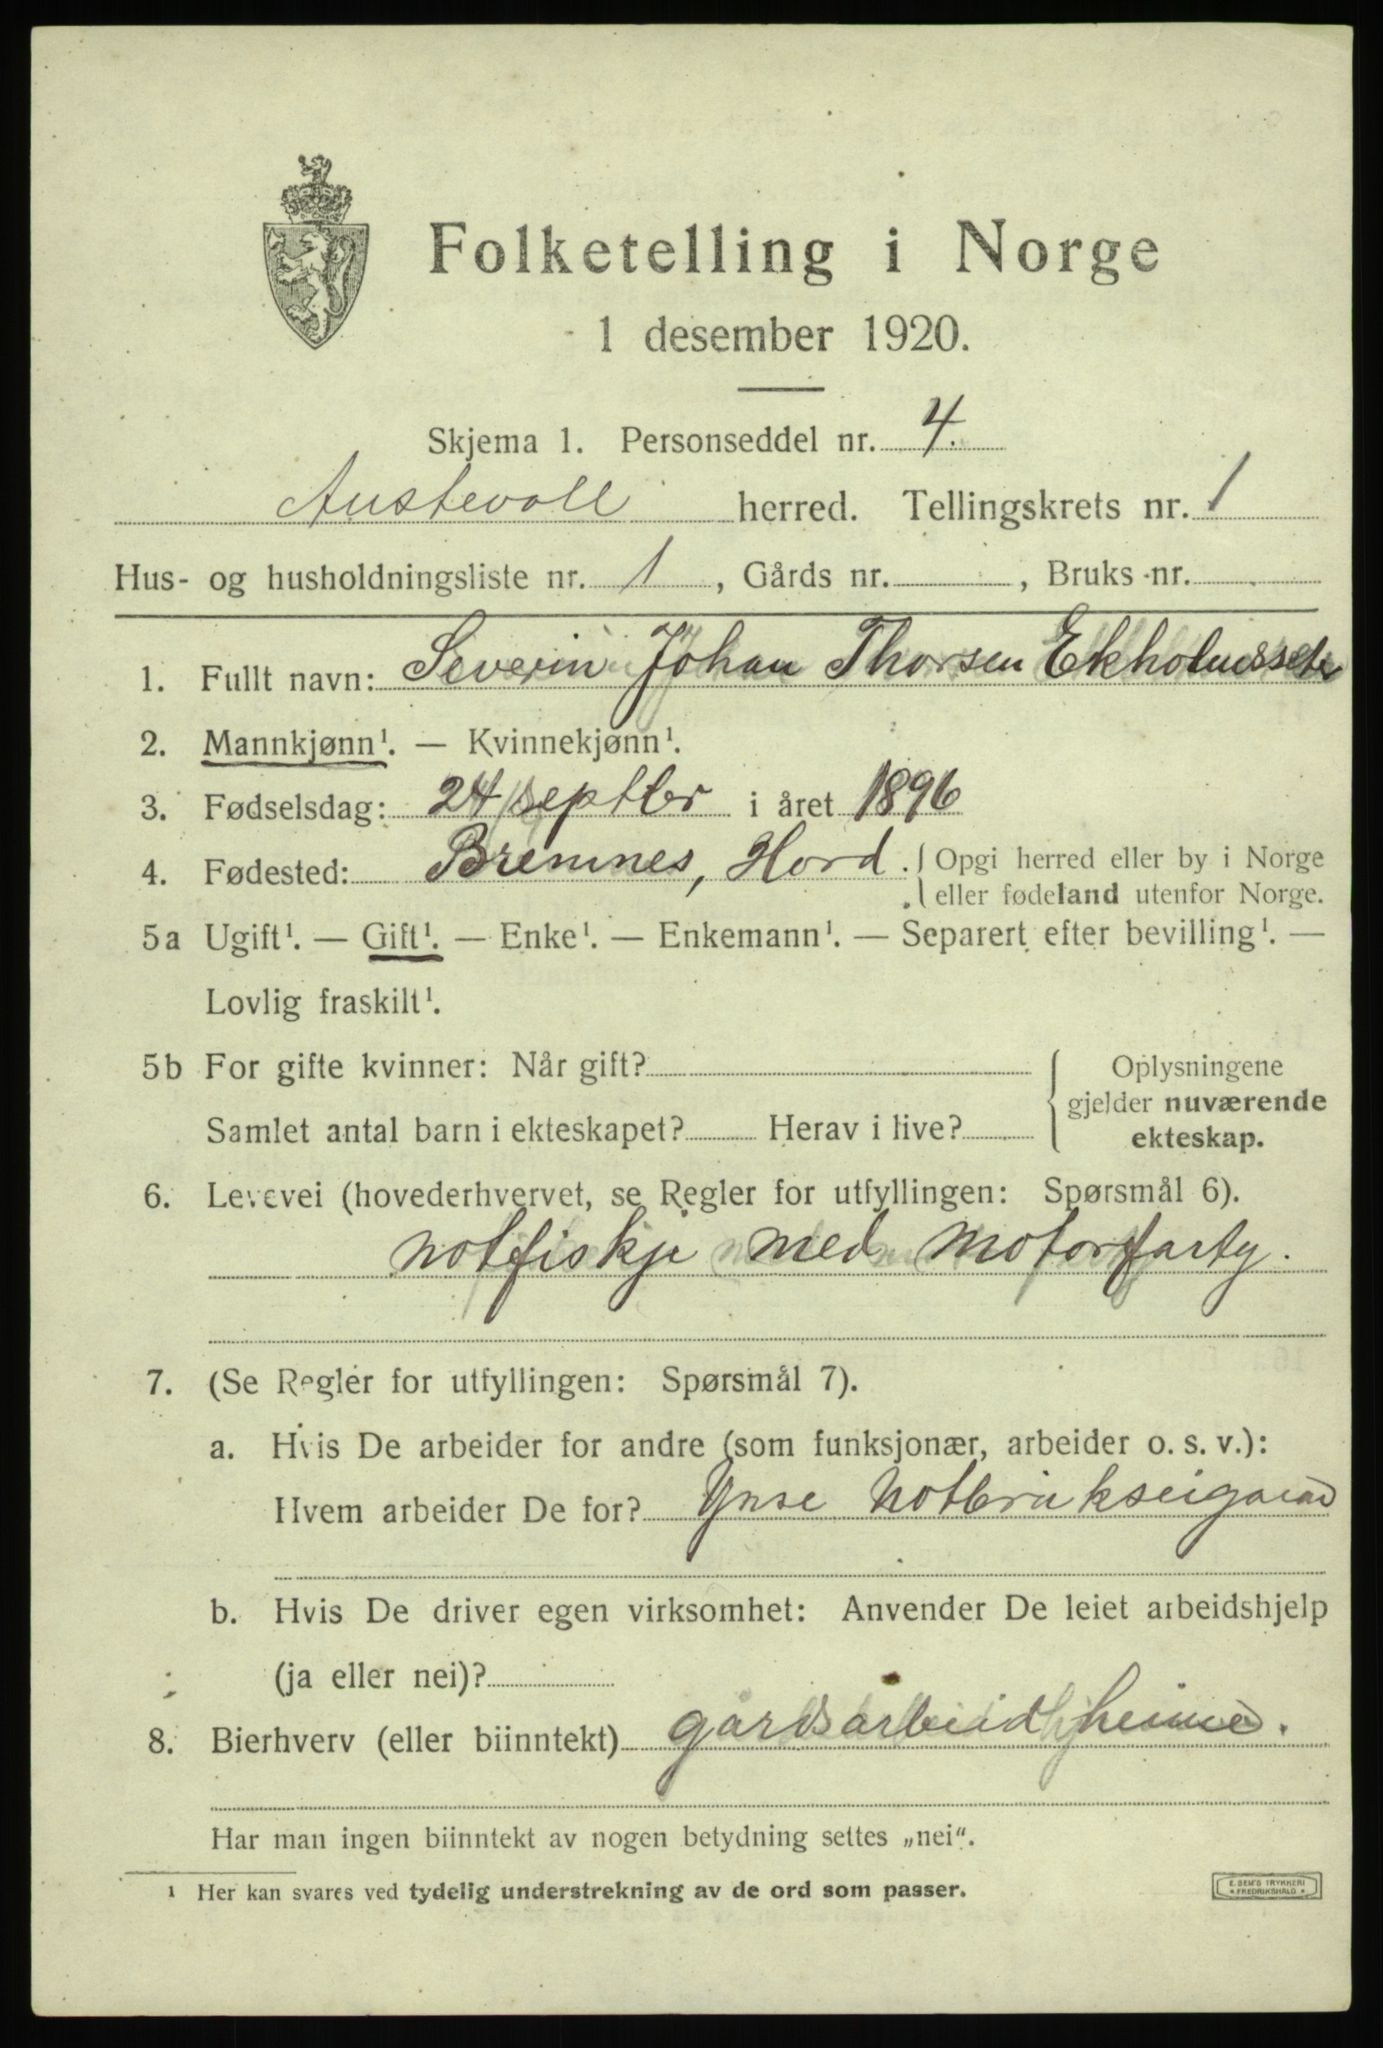 Folketelling i Norge
1 desember 1920.
Skjema 1. Personseddel nr. 4.
Austevoll herred. Tellingskrets nr. 1
Hus- og husholdningsliste nr. 1, Gårds nr. , Bruks nr.
1. Fullt navn: Severin Johan Thorsen Ekholmssete
2. Mannkjønn¹. — Kvinnekjønn¹.
3. Fødselsdag: 24 septbr i året 1896
4. Fødested: Bremnes, Hord. { Opgi herred eller by i Norge
eller fødeland utenfor Norge.
5a Ugift¹. — Gift¹. — Enke¹. — Enkemann¹. — Separert efter bevilling¹. —
Lovlig fraskilt¹.
5b For gifte kvinner: Når gift? { Oplysningene
gjelder nuværende
Samlet antal barn i ekteskapet? Herav i live? ekteskap.
6. Levevei (hovederhvervet, se Regler for utfyllingen: Spørsmål 6).
notfiskje med motorfarty.
7. (Se Regler for utfyllingen: Spørsmål 7).
a. Hvis De arbeider for andre (som funksjonær, arbeider o. s. v.):
Hvem arbeider De for? Ymse Notbrukseigarar
b. Hvis De driver egen virksomhet: Anvender De leiet arbeidshjelp
(ja eller nei)?
8. Bierhverv (eller biinntekt) gardsarbeid heime.
Har man ingen biinntekt av nogen betydning settes „nei“.
¹ Her kan svares ved tydelig understrekning av de ord som passer.
E. SEM'S TRYKKERI
FREDRIKSHALD